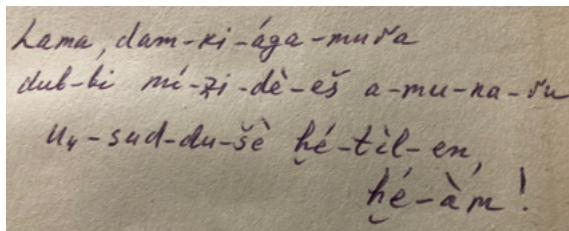 Lama, dam-ki-ága-mura
dub-bi mí-zi-dè-eš a-mu-na-ru
u₄-sud-du-šè ḫé-tìl-en,
ḫé-àm!